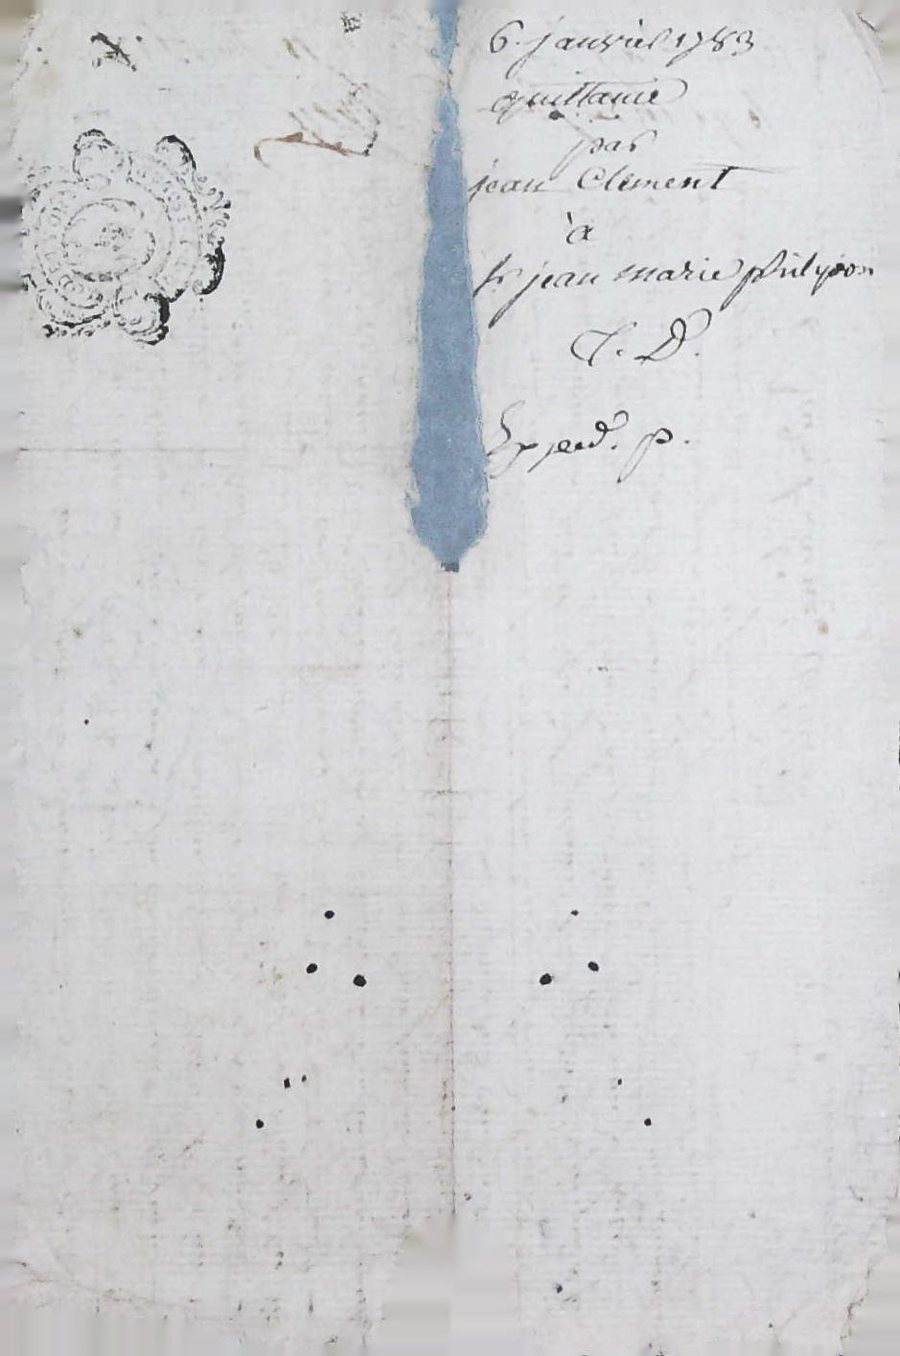 6. janvier 1783
quittance
par
jean Clément
à
Sr jean marie philypon
J. D.
Exped. p.